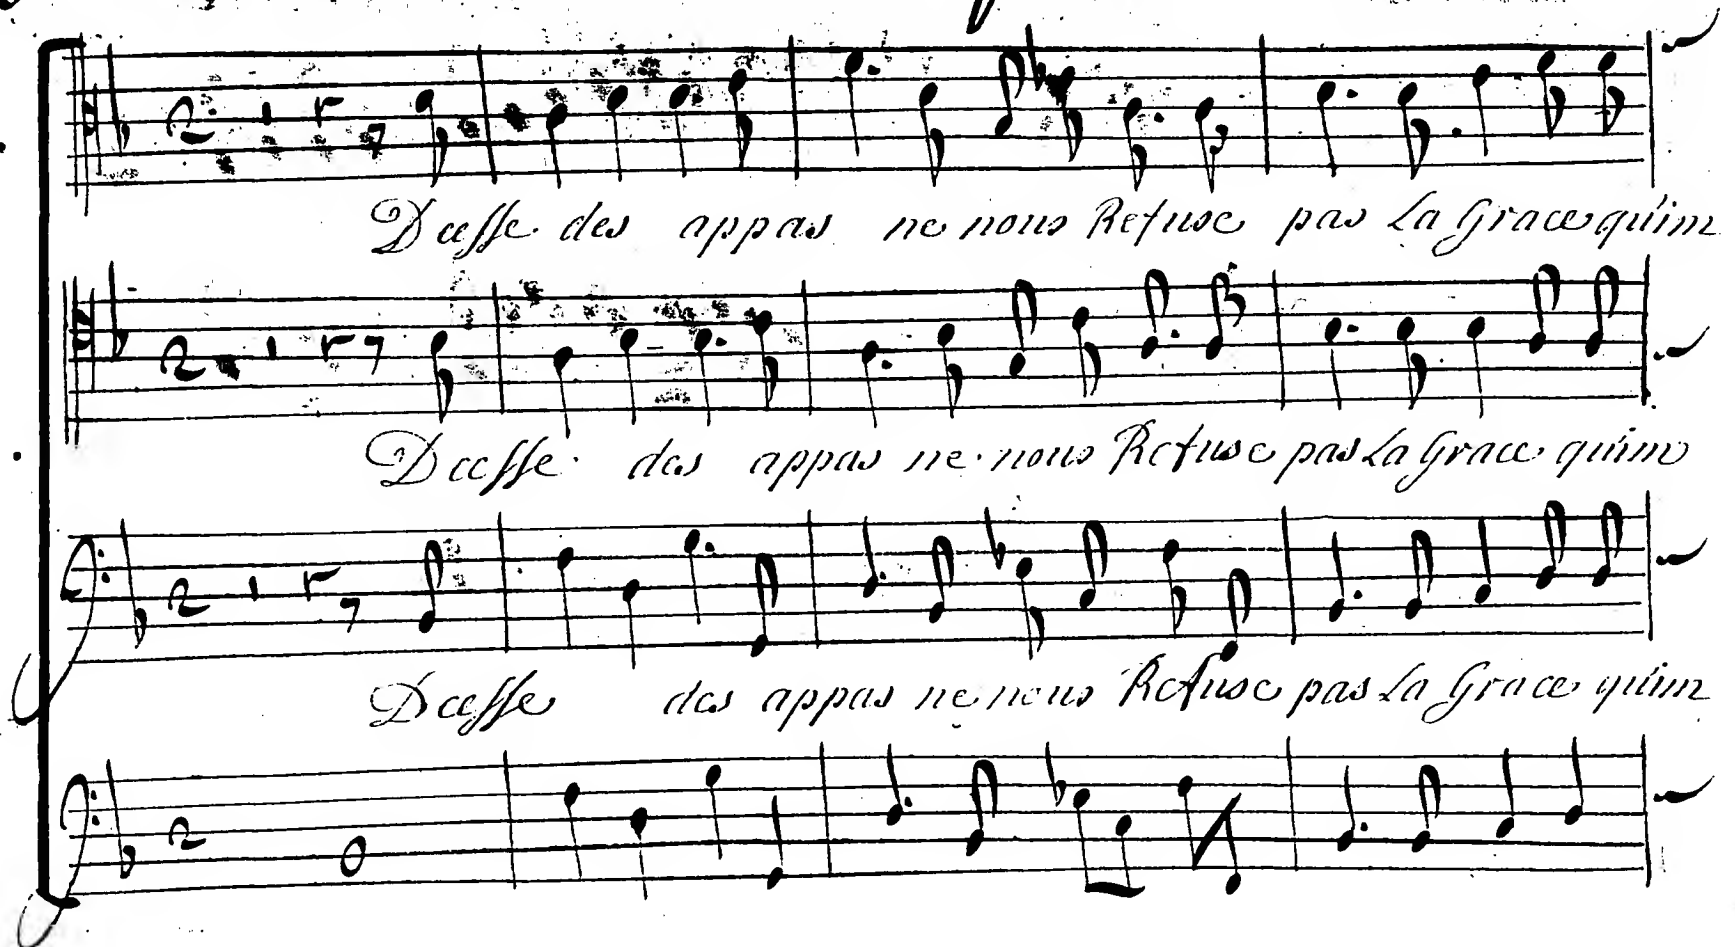 Deesse des appas ne nous Refuse pas La Grace qu'im
Deesse des appas ne nous Refuse pas La Grace qu'im
Deesse des appas ne nous Refuse pas La Grace qu'im